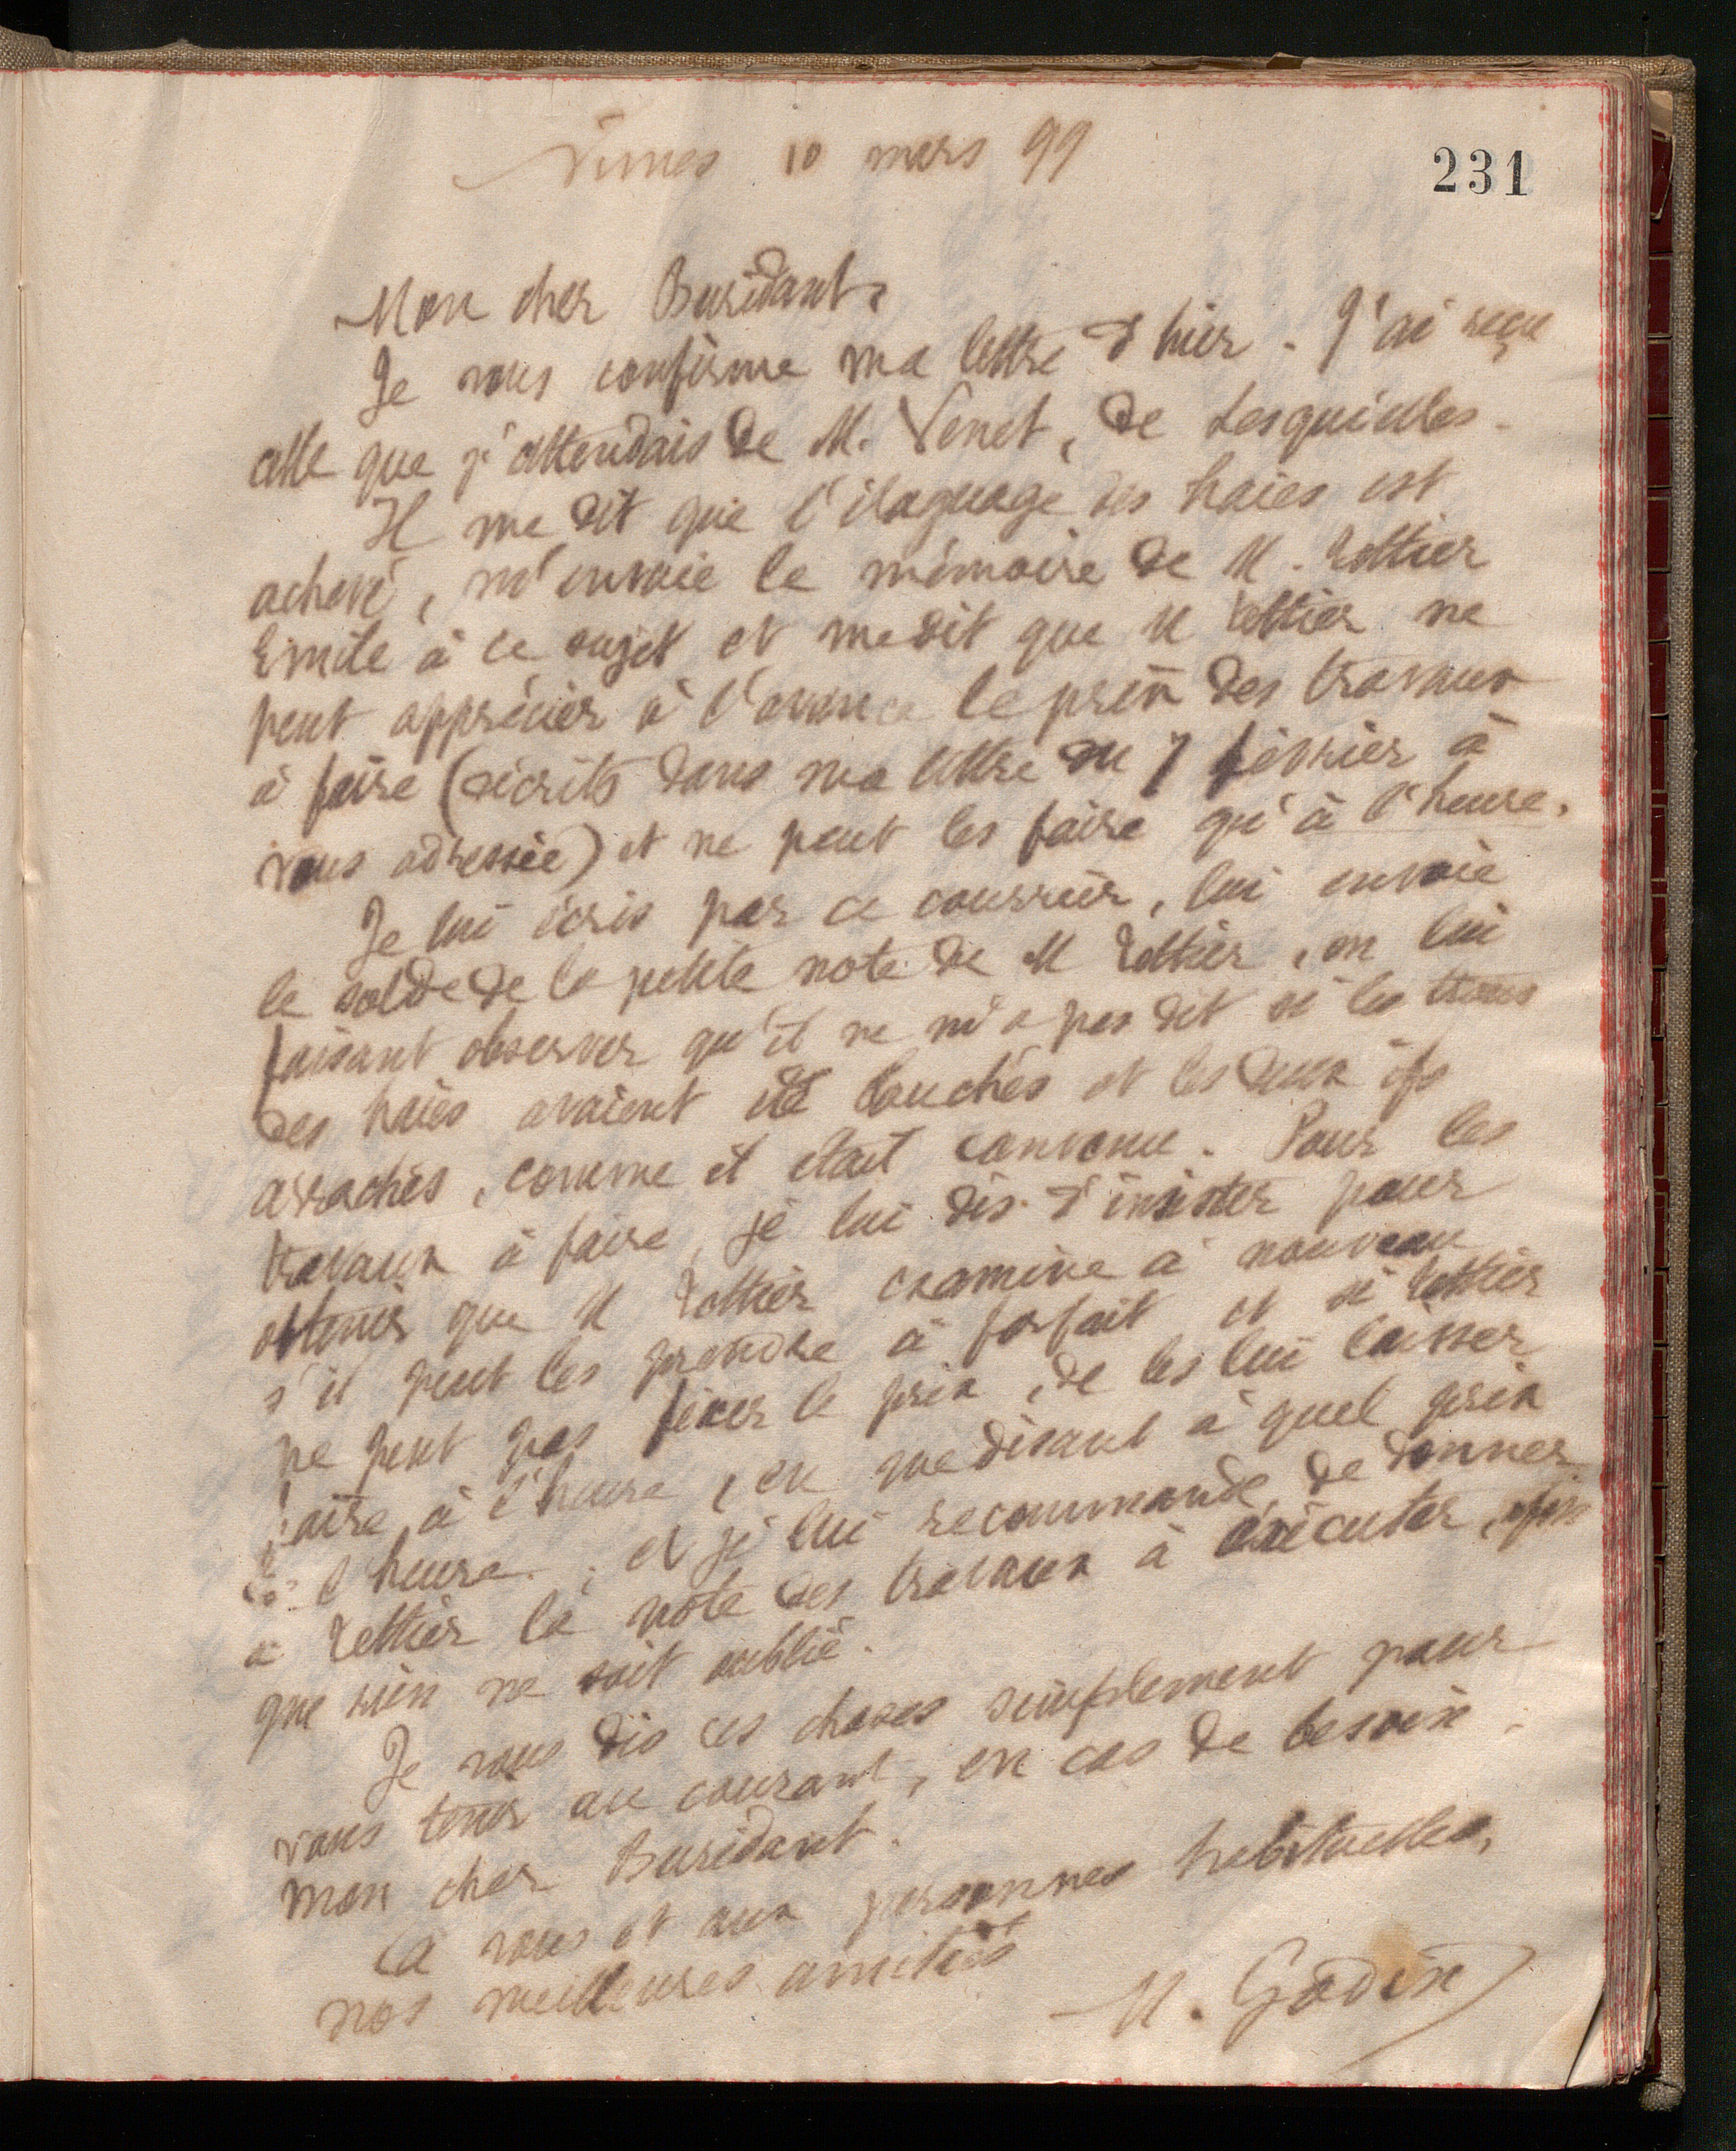 Nimes 10 mars 99
231
Mon cher Buridant,
Je vous confirme ma lettre d'hier. J'ai reçu
celle que j'attendais de M. Venet, de Lesquielles.
Il me dit que l'élaguage des haies est
achevé, m'envoie le mémoire de M. Rottier
Emile à ce sujet et me dit que M Rottier ne
peut apprécier à l'avance le prix des travaux
à faire (décrits dans ma lettre du 7 février à
vous adressée) et ne peut les faire qu'à l'heure.
Je lui écris par ce courrier, lui envoie
le solde de la petite note de M Rottier, en lui
faisant observer qu'il ne m'a pas dit si les trous
des haies avaient été bouchés et les deux ifs
arrachés, comme il était convenu. Pour les
travaux à faire, je lui dis d'insister pour
obtenir que M Rottier examine à nouveau
s'il peut les prendre à forfait et si Rottier
ne peut pas fixer le prix, de les lui laisser
faire à l'heure, en me disant à quel prix
l'heure; et je lui recommande de donner
à Rottier la note des travaux à exécuter, afin
que rien ne soit oublié.
Je vous dis ces choses simplement pour
vous tenir au courant, en cas de besoin,
mon cher Buridant.
A vous et aux personnes habituelles,
nos meilleures amitiés
M. Godin